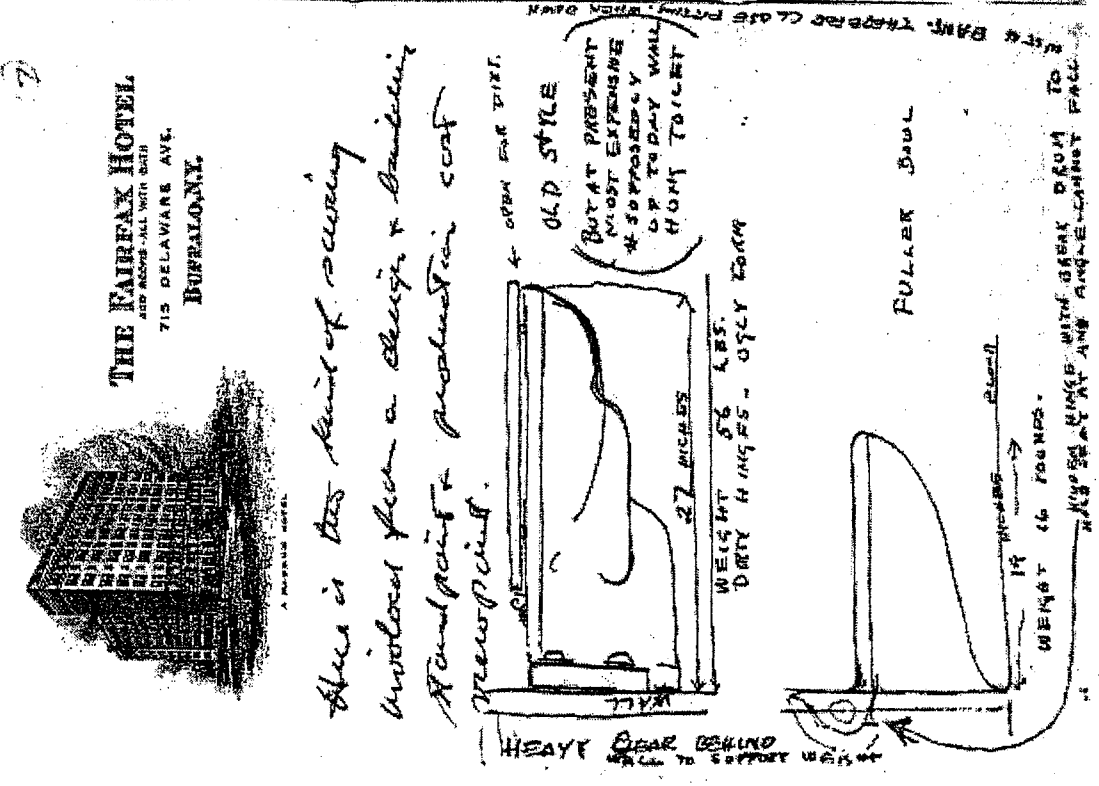 THE FAIRFAX HOTEL
400 ROOMS - ALL WITH BATH
715 DELAWARE AVE.
BUFFALO, N.Y.
Here is the kind of saving
involved from a design & building
standpoint & production cost
viewpoint.
← OPEN FOR DIRT.
OLD STYLE
(BUT AT PRESENT
MOST EXPENSIVE
& SUPPOSEDLY
UP TO DAY WALL
HUNG TOILET)
27 INCHES
WEIGHT 56 LBS.
DIRTY HINGES - UGLY FORM
WALL
HEAVY GEAR BEHIND
WALL TO SUPPORT WEIGHT
FULLER BOWL
FLOOR
19 INCHES
WEIGHT 16 POUNDS.
HIDDEN HINGE WITH BREAK DRUM TO
HOLD SEAT AT ANY ANGLE - CANNOT FALL
CLOSE FITTING WHEN DOWN